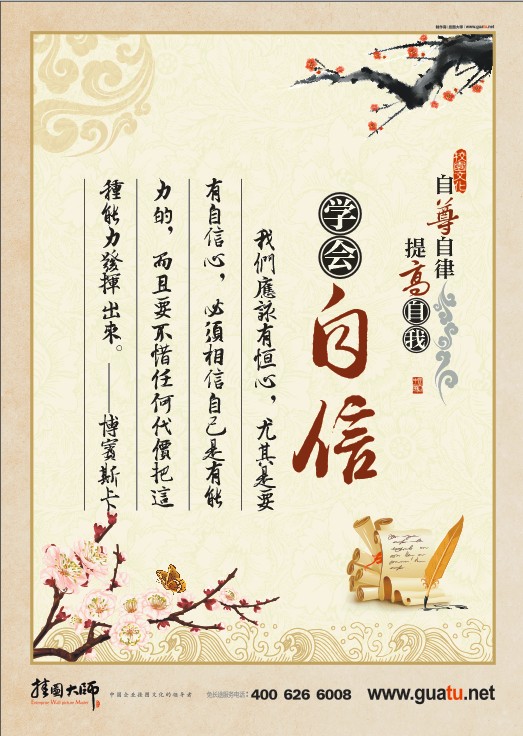 挂图大师 www.guatu.net
校园文化
自尊自律
提高自我
学会
自信
我們應該有恒心，尤其是要
有自信心，必須相信自己是有能
力的，而且要不惜任何代價把這
種能力發揮出來。——博賓斯卡
挂图大师
中国企业挂图文化的领导者
免长途服务电话：400 626 6008
www.guatu.net